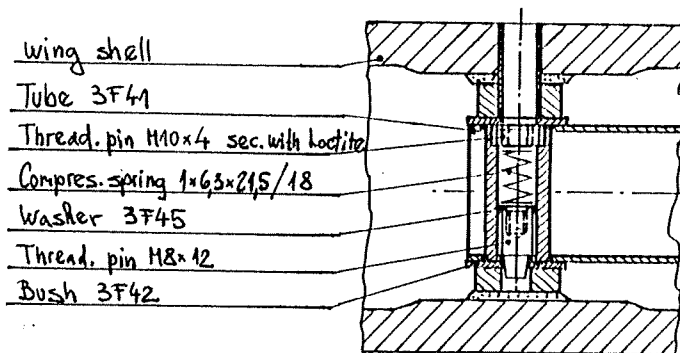 wing shell
Tube 3F41
Thread. pin M10×4 sec. with Loctite
Compres. spring 1×6,3×21,5/18
Washer 3F45
Thread. pin M8×12
Bush 3F42